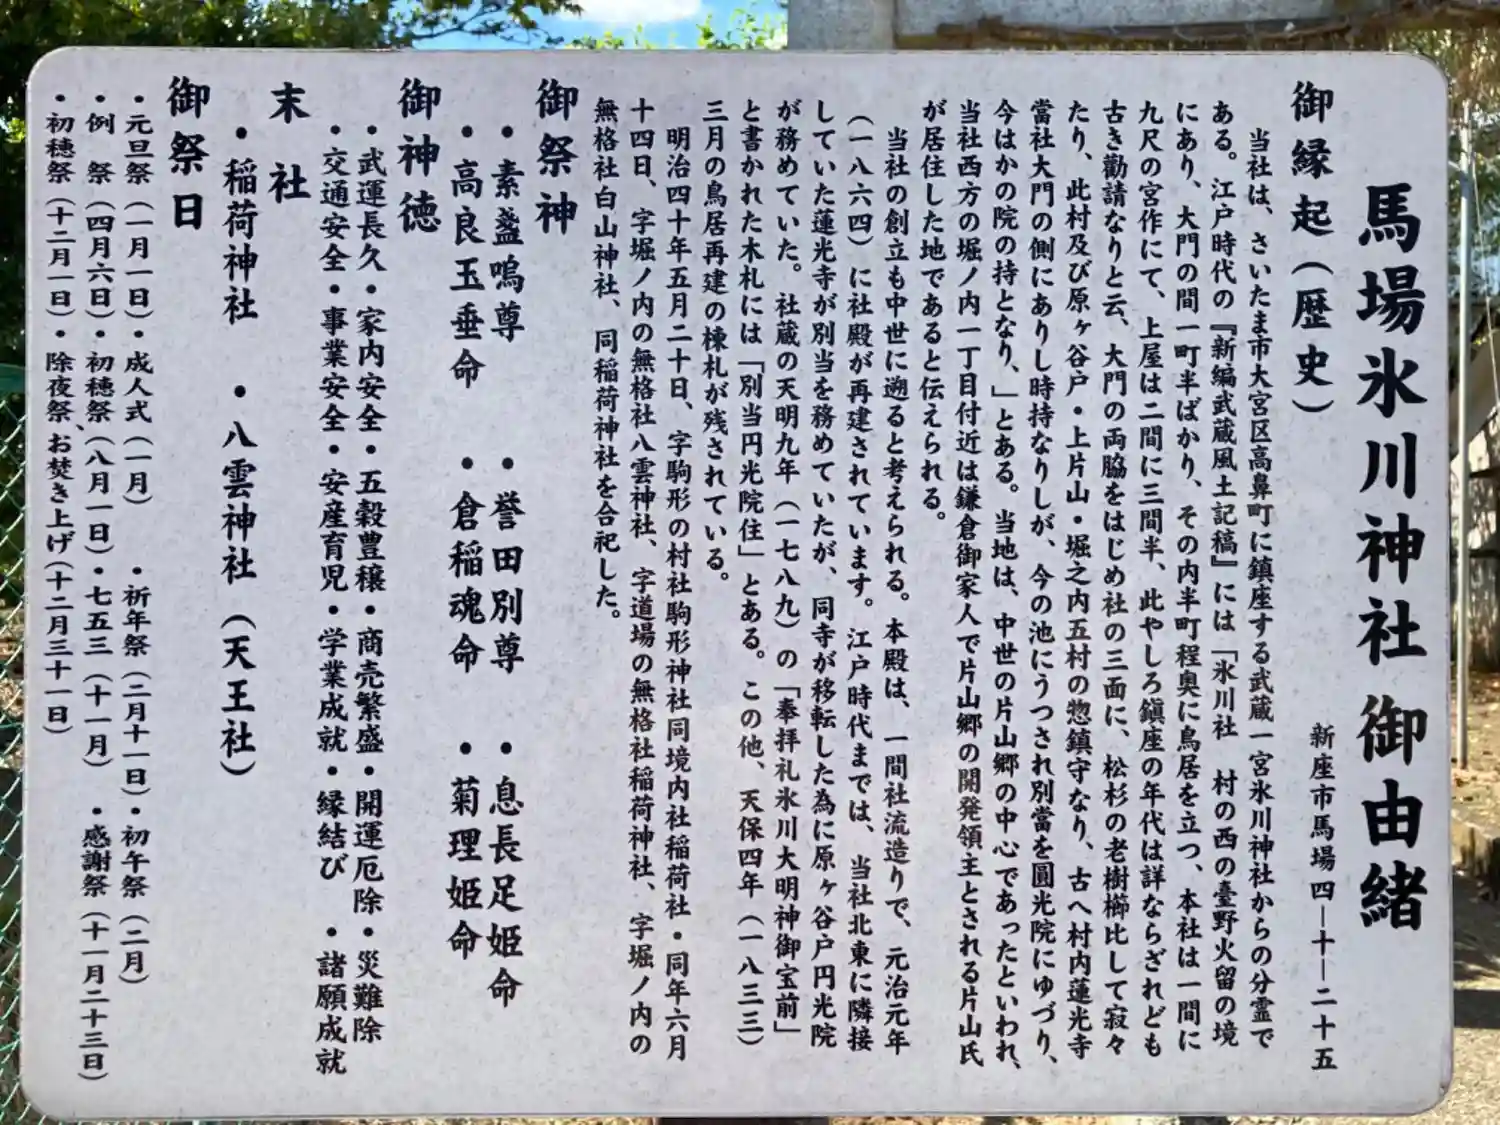 馬場氷川神社 御由緒
新座市馬場四―十―二十五
御縁起(歴史)
当社は、さいたま市大宮区高鼻町に鎮座する武蔵一宮氷川神社からの分霊で
ある。江戸時代の『新編武蔵風土記稿』には「氷川社 村の西の臺野火留の境
にあり、大門の間一町半ばかり、その内半町程奥に鳥居を立つ、本社は一間に
九尺の宮作にて、上屋は二間に三間半、此やしろ鎮座の年代は詳ならざれども
古き勸請なりと云、大門の両脇をはじめ社の三面に、松杉の老樹櫛比して寂々
たり、此村及び原ヶ谷戸・上片山・堀之内五村の惣鎮守なり、古へ村内蓮光寺
當社大門の側にありし時持なりしが、今の池にうつされ別當を圓光院にゆづり、
今はかの院の持となり、」とある。当地は、中世の片山郷の中心であったといわれ、
当社西方の堀ノ内一丁目付近は鎌倉御家人で片山郷の開発領主とされる片山氏
が居住した地であると伝えられる。
当社の創立も中世に遡ると考えられる。本殿は、一間社流造りで、元治元年
(一八六四)に社殿が再建されています。江戸時代までは、当社北東に隣接
していた蓮光寺が別当を務めていたが、同寺が移転した為に原ヶ谷戸円光院
が務めていた。社蔵の天明九年(一七八九)の「奉拝礼氷川大明神御宝前」
と書かれた木札には「別当円光院住」とある。この他、天保四年(一八三三)
三月の鳥居再建の棟札が残されている。
明治四十年五月二十日、字駒形の村社駒形神社同境内社稲荷社・同年六月
十四日、字堀ノ内の無格社八雲神社、字道場の無格社稲荷神社、字堀ノ内の
無格社白山神社、同稲荷神社を合祀した。
御祭神
・素盞嗚尊 ・誉田別尊 ・息長足姫命
・高良玉垂命 ・倉稲魂命 ・菊理姫命
御神徳
・武運長久・家内安全・五穀豊穣・商売繁盛・開運厄除・災難除
・交通安全・事業安全・安産育児・学業成就・縁結び ・諸願成就
末 社
・稲荷神社 ・八雲神社(天王社)
御祭日
・元旦祭(一月一日)・成人式(一月) ・祈年祭(二月十一日)・初午祭(二月)
・例 祭(四月六日)・初穂祭(八月一日)・七五三(十一月) ・感謝祭(十一月二十三日)
・初穂祭(十二月一日)・除夜祭、お焚き上げ(十二月三十一日)